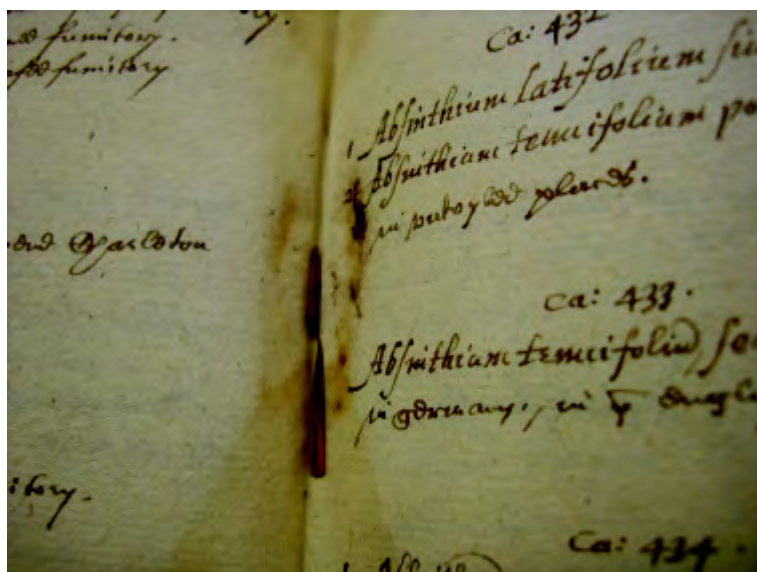 fumitory.
fumitory
and Charleton
itory.
Ca: 432
1 Absinthium latifolium siu
2 Absinthium tenuifolium po
in places.
Ca: 433.
Absinthium tenuifoliu
in germany., in
Ca: 434.